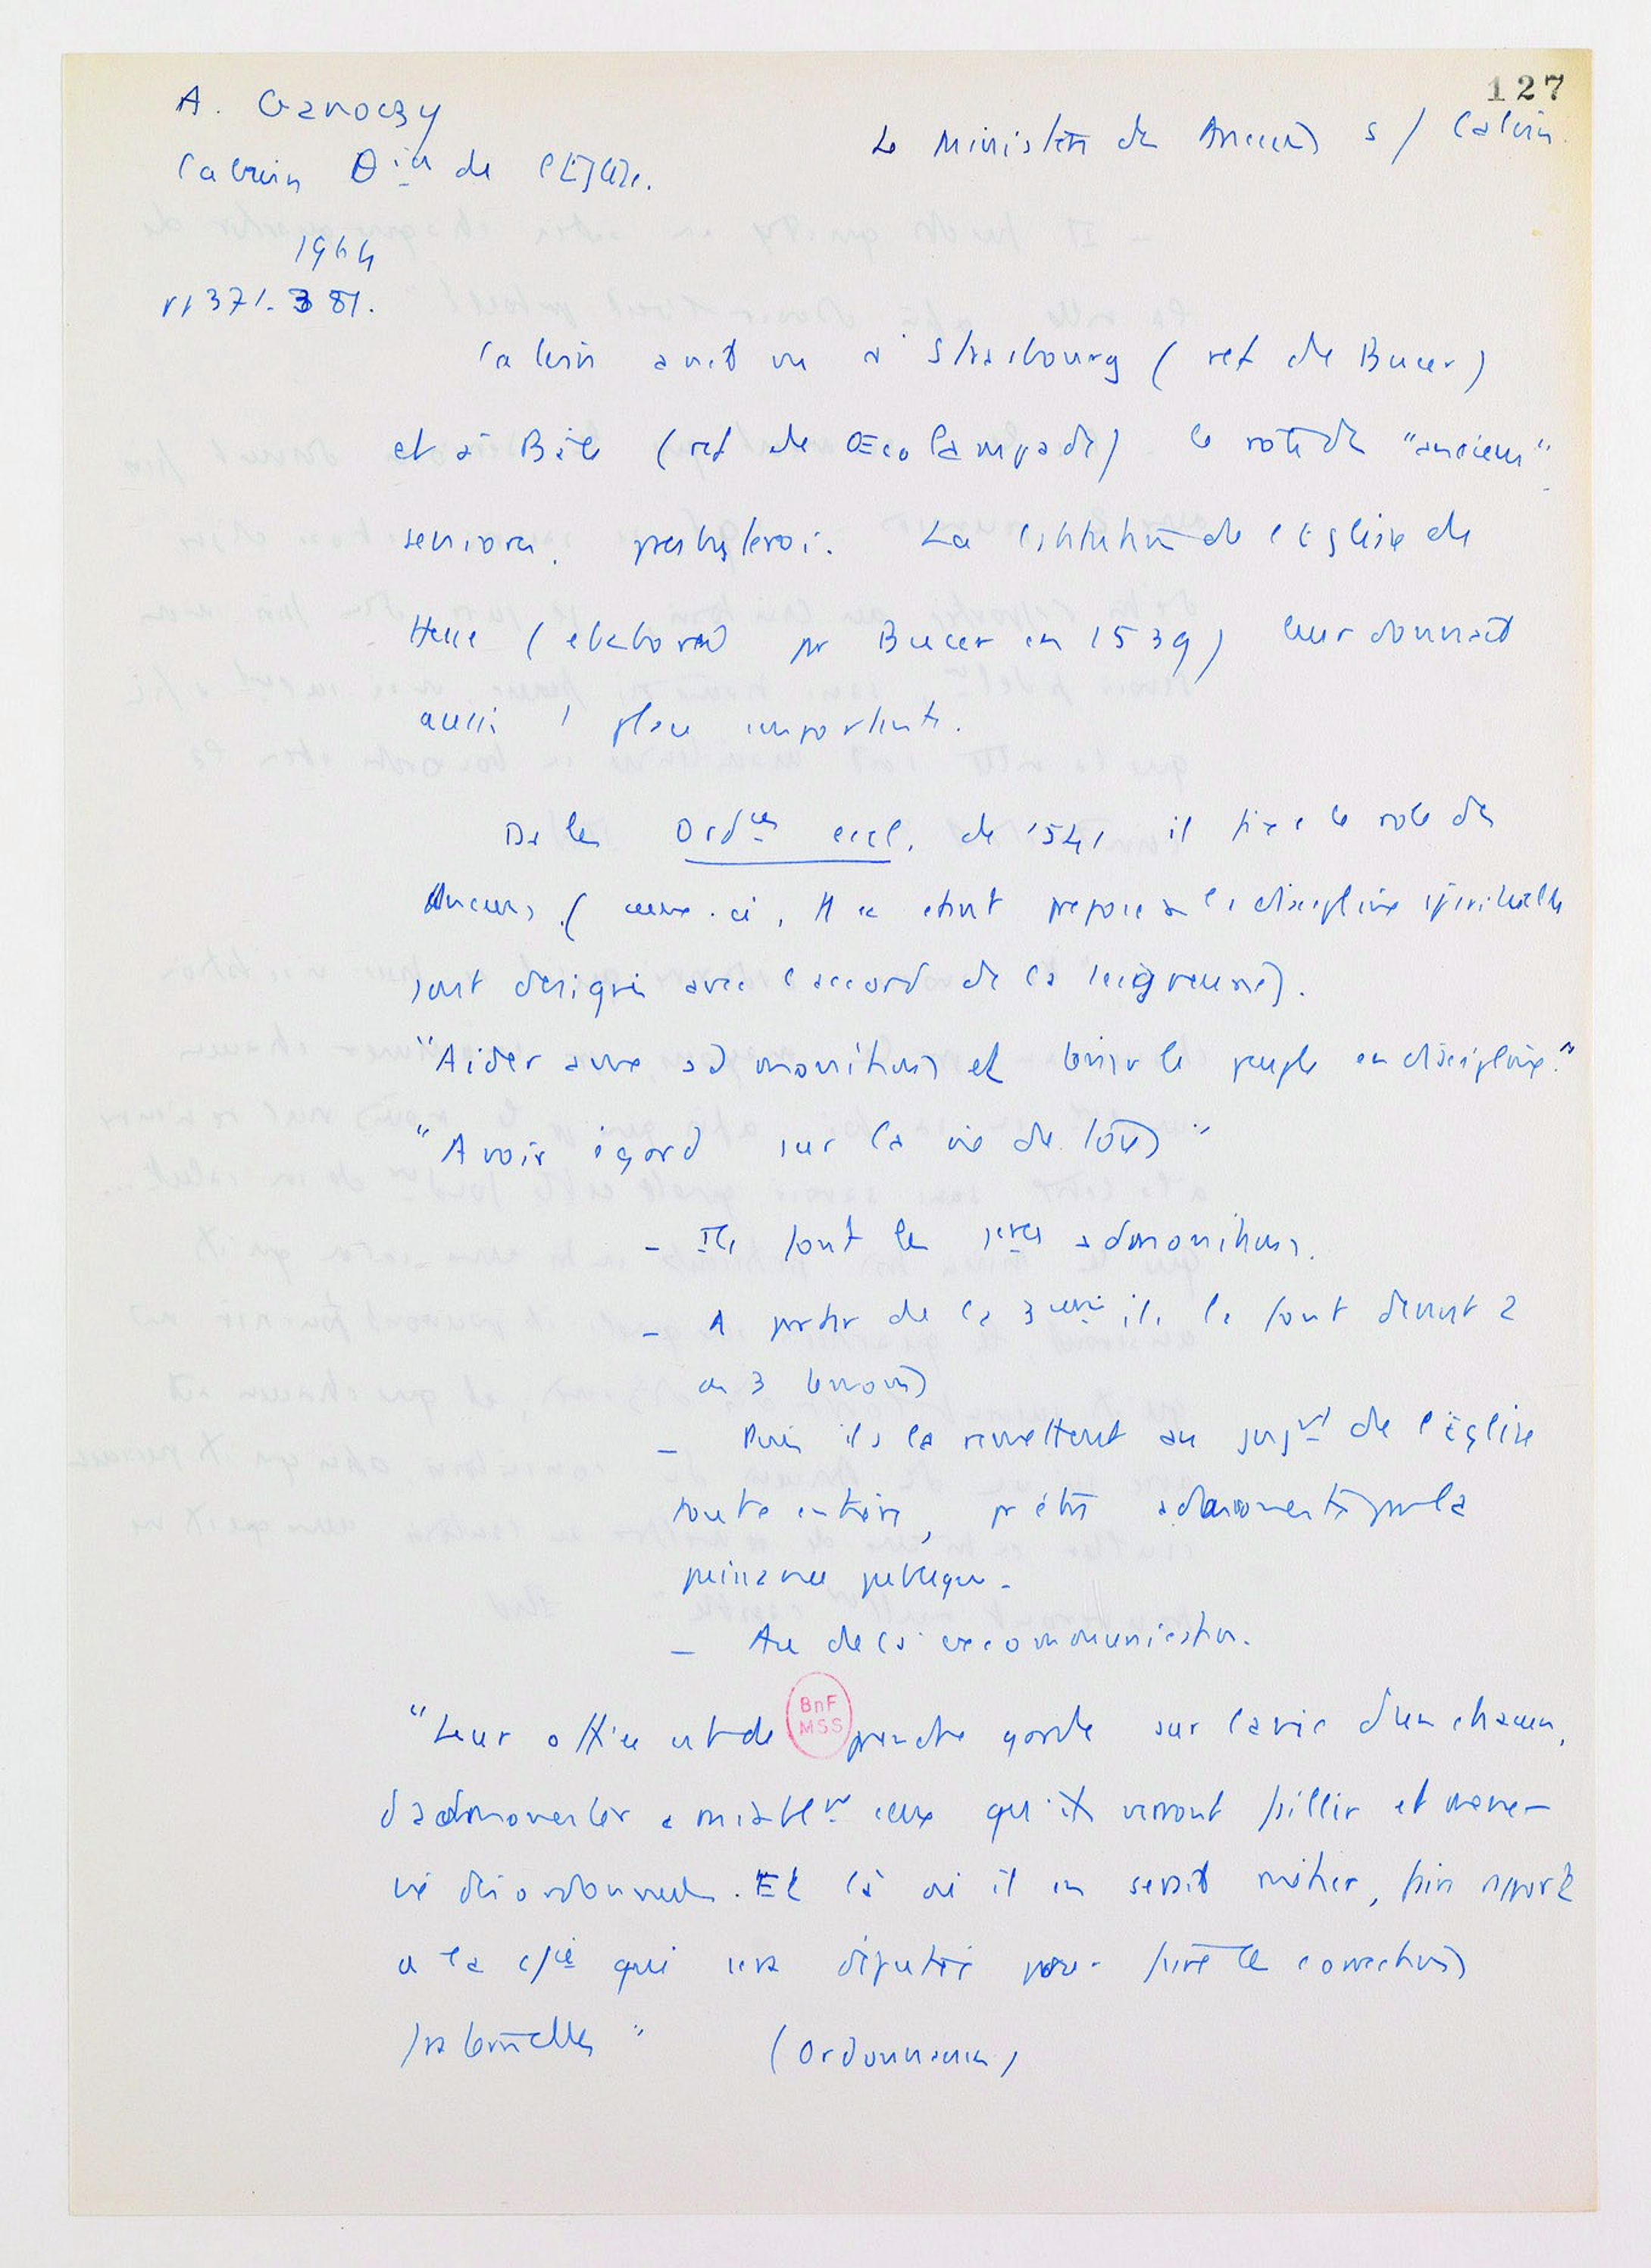 127
A. Ganoczy
Le Ministère des Anciens s/ Calvin
Calvin θien de l'Eglise.
1964
pp 371-381.
Calvin avait vu à Strasbourg (ref de Bucer)
et à Bâle (ref de Œcolampade) le rôle des "anciens"
seniores, presbyteroi. La constitution de l'Eglise de
Hesse (elaboree par Bucer en 1539) leur donnait
aussi 1 place importante.
Ds les Ordces eccl. de 1541 il fixe le role des
Anciens (ceux-ci, etant preposes a la discipline spirituelle
sont designes avec l'accord de la seigneurie).
"Aider aux admonitions et tenir le peuple en discipline."
"Avoir égard sur la vie de tous"
- Ils font les 1eres admonitions.
- A partir de la 3eme ils la font devant 2
ou 3 temoins
- Puis ils la remettent au jugt de l'Église
toute entière, pr être admonesté par la
puissance publique.
- Au dela excommunication.
BnF
MSS
"Leur office est de prendre garde sur la vie d'un chacun,
d'admonester amiablemt ceux qu'ils verront faillir et mener
vie désordonnée. Et là où il en serait métier, faire rapport
a la cie qui sera députée pour faire les corrections
fraternelles" (Ordonnances)